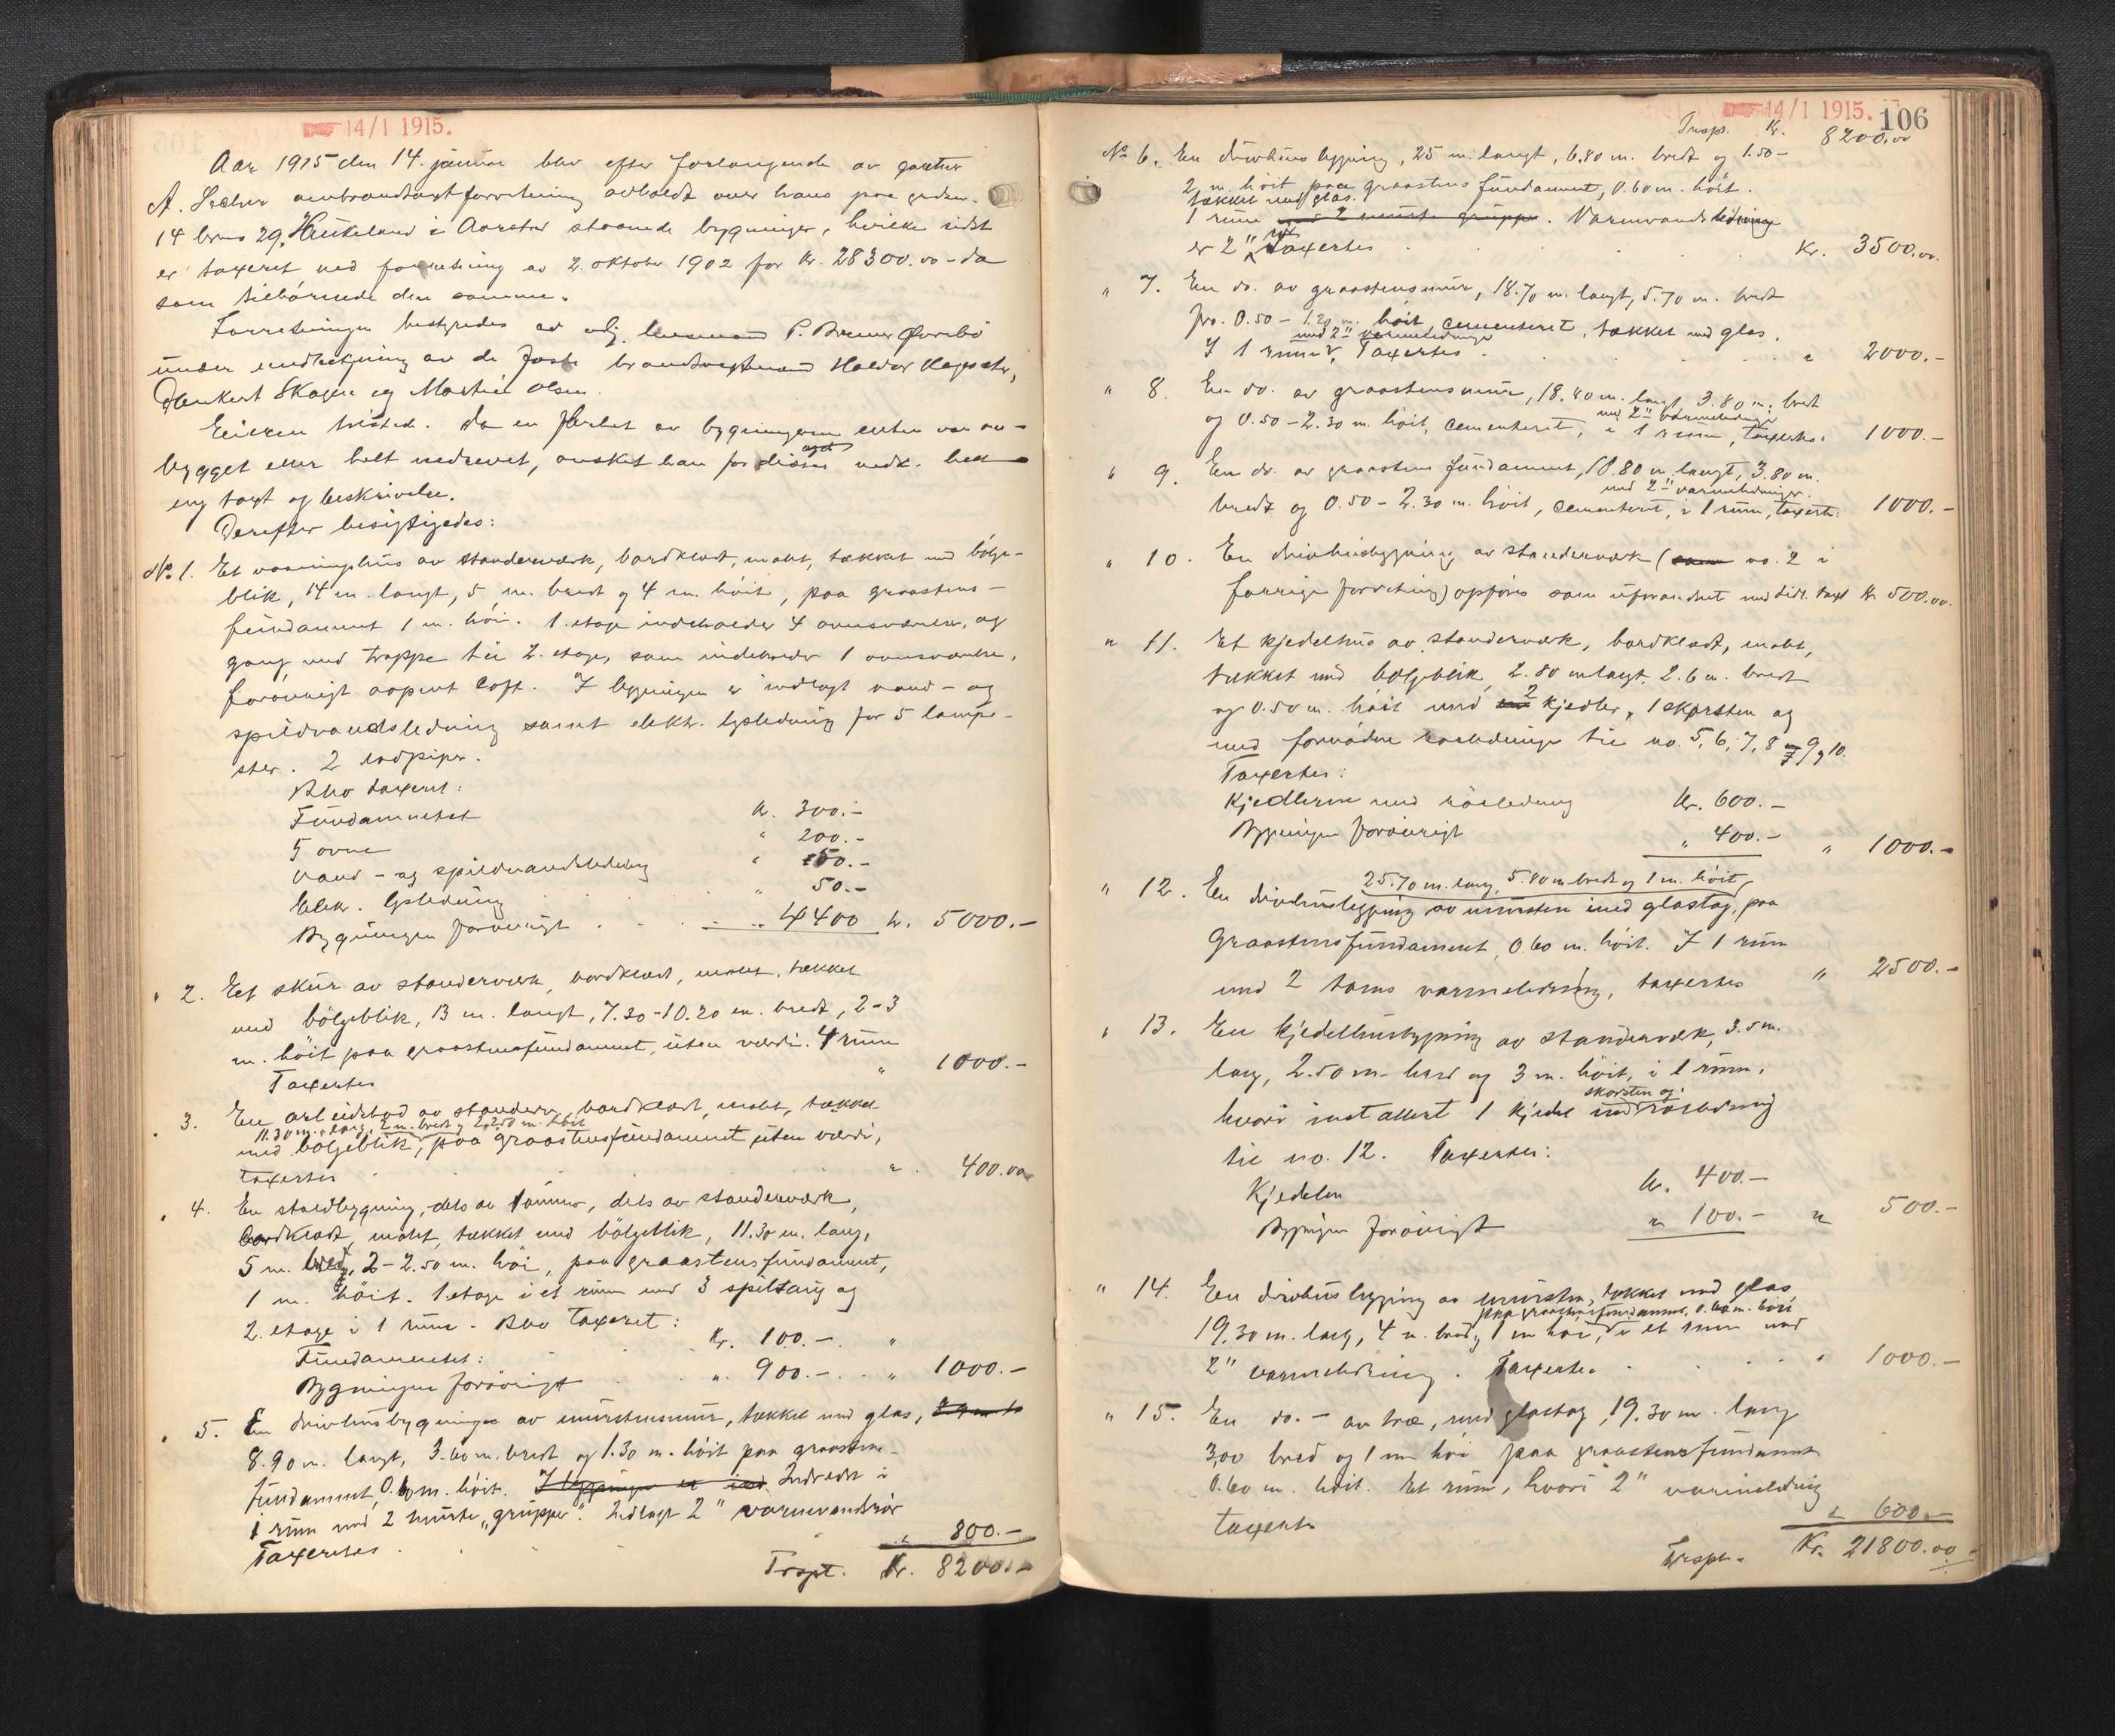 14/1 1915.
Aar 1915 den 14. januar blev efter forlangende av gartner
A. ombrandtaxtforretning avholdt over hans paa gården.
14 brno 29, Haukeland i Aarstad staaende bygninger, hvilke sidst
er taxeret ved forretning av 2. oktober 1902 for kr. 28300.00 - da
som tilhørende den samme.
Forretningen bestyredes av lensmand P.
under medvirkning av de faste brandtaxtmænd Haldor
Skagen og Martin Olsen.
Eieren tilstede. Da en flerhet av bygningerne enten var om-
bygget eller helt nedrevet, ønsket han for
ny taxt og beskrivelse.
Derefter besigtigedes:
No. 1. Et vaaningshus av standerværk, bordklædt, malt, tækket med bölge-
blik, 14 m. langt, 5 m. bredt og 4 m. höit, paa graastens-
fundament 1 m. höi. 1. etage indeholder 4 ovnsværelser, og
gang med trappe til 2. etage, som indeholder 1 ovnsværelse,
forövrigt aapent loft. I bygningen er indlagt vand- og
spildvandsledning samt elektr. lysledning for 5 lampe-
ster. 2 rodpiper.
Blev taxeret:
Fundamentet kr. 300.-
5 ovne " 200.-
Vand- og spildvandsledning " 50.-
Elek. lysledning " 50.-
Bygningen forövrigt . . . 4400 kr. 5000.-
" 2. Et skur av standerværk, bordklædt, malt, tækket
med bölgeblik, 13 m. langt, 7.20-10.20 m. bredt, 2-3
m. höit paa graastensfundament, uten værdi. 4 rum
Taxertes " 1000.-
" 3. En arbeidsbod av standerv. bordklædt, malt, tækket
11.30 m. lang, 2 m. bred og 2,50 m. höit
med bölgeblik, paa graastensfundament uten værdi,
taxertes " 400.00
" 4. En staldbygning, dels av tömmer, dels av standerværk,
bordklædt, malet, tækket med bölgeblik, 11.30 m. lang,
5 m. bred, 2-2.50 m. höi, paa graastensfundament,
1 m. höit. 1. etage i et rum med 3 spiltaug og
2. etage i 1 rum. Blev taxeret:
Fundamentet: kr. 100.- "
Bygningen forövrigt " 900.- " 1000.-
" 5. En drivhusbygning av murstensmur, tækket med glas,
8.90 m. langt, 3.60 m. bredt og 1.30 m. höit paa graastens-
fundament, 0.60 m. höit. I bygningen er ind Indredet i
1 rum med 2 murte "grupper". Indlagt 2" varmevandsrör
Taxertes . . . 800.-
Trspt. Kr. 8200.-
14/1 1915. 106
Trsp. Kr. 8200.00
No 6. En drivhusbygning, 25 m. langt, 6.80 m. bredt og 1.50-
2 m. höit paa graastens fundament, 0.60 m. höit.
tækket med glas.
1 rum med 2 murte grupper. Varmvandsledninger
er 2" rör Taxertes . . . Kr. 3500.00.
" 7. En do. av graastensmur, 18.70 m. langt, 5.70 m. bredt
fra 0.50 - 1.20 m. höit, cementeret, tækket med glas.
med 2" varmeledninger
I 1 rum. Taxertes . . . " 2000.-
" 8. En do. av graastensmur, 18.40 m. langt 3.80 m. bredt
med 2" varmeledninger
og 0.50-2.30 m. höit, cementeret, i 1 rum, taxertes: 1000.-
" 9. En do. av graastens fundament, 10.80 m. langt, 3.80 m.
med 2" varmeledninger.
bredt og 0.50 - 2.30 m. höit, cementeret, i 1 rum, taxert: 1000.-
" 10. En drivhusbygning av standerværk (som no. 2 i
forrige forretning) opföres som uforandret med sidt. taxt Kr 500.00.
" 11. Et kjedelhus av standerværk, bordklædt, malt,
tækket med bölgeblik, 2.80 m langt, 2.6 m. bredt
og 0.50 m. höit med 2 kjedler, 1 skorsten og
med fornödne rörledninger til no. 5, 6, 7, 8, 9 og 10.
Taxertes:
Kjedlerne med rörledning kr. 600.-
Bygningen forövrigt " 400.- " 1000.-
25.70 m. lang, 5.80 m bredt og 1 m. höit
" 12. En drivhusbygning av mursten med glastag, paa
Graastensfundament, 0.60 m. höit. I 1 rum
med 2 toms varmeledning, taxertes " 2500.-
" 13. En kjedelhusbygning av standerværk, 3.5 m.
lang, 2.50 m. bred og 3 m. höit, i 1 rum,
skorsten og
hvori installert 1 kjedel med rörledning
til no. 12. Taxertes:
Kjedelen kr. 400.-
Bygningen forövrigt " 100.- " 500.-
" 14. En drivhusbygning av mursten, tækket med glas
paa graastensfundament, 0.60 m. höit
19.30 m. lang, 4 m. bred, 1 m höi, i et rum med
2" varmeledning. Taxertes . . . " 1000.-
" 15. En do. - av træ, med glastag, 19.30 m. lang
3,00 bred og 1 m höi paa graastensfundament
0.60 m. höit. Et rum, hvori 2" varmeledning
taxerte " 600.-
Trspt. Kr. 21800.00